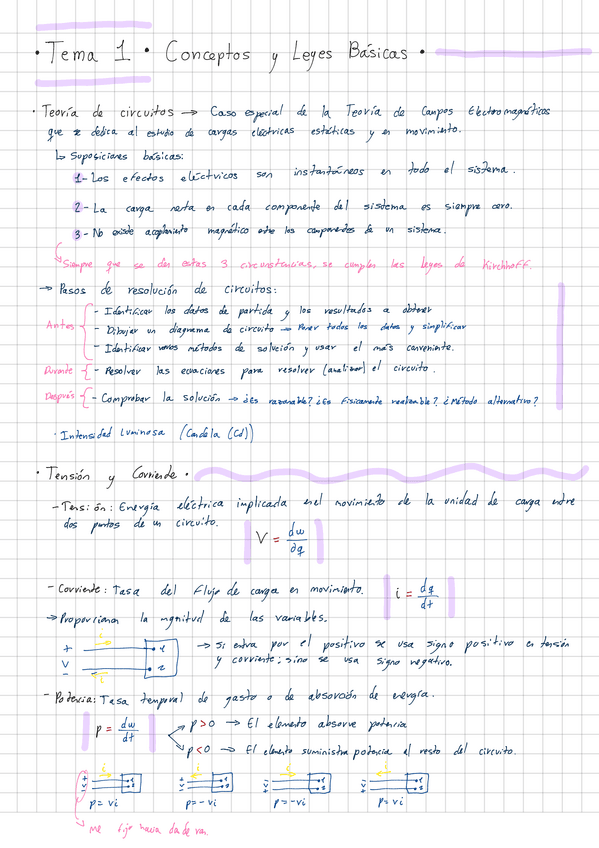 • Tema 1 • Conceptos y Leyes Básicas •
· Teoría de circuitos → Caso especial de la Teoría de Campos Electromagnéticos
que se dedica al estudio de cargas eléctricas estáticas y en movimiento.
↳ Suposiciones básicas:
1- Los efectos eléctricos son instantáneos en todo el sistema.
2- La carga neta en cada componente del sistema es siempre cero.
3- No existe acoplamiento magnético entre los componentes de un sistema.
↳ Siempre que se den estas 3 circunstancias, se cumplen las leyes de Kirchhoff.
→ Pasos de resolución de circuitos:
- Identificar los datos de partida y los resultados a obtener
Antes { - Dibujar un diagrama de circuito → Poner todos los datos y simplificar
- Identificar varios métodos de solución y usar el más conveniente.
Durante { - Resolver las ecuaciones para resolver (analizar) el circuito.
Después { - Comprobar la solución → ¿Es razonable? ¿Es físicamente realizable? ¿Método alternativo?
· Intensidad Luminosa (Candela (Cd))
• Tensión y Corriente •
- Tensión: Energía eléctrica implicada en el movimiento de la unidad de carga entre
dos puntos de un circuito.
V = dw/dq
- Corriente: Tasa del flujo de carga en movimiento. i = dq/dt
→ Proporcionan la mgnitud de las variables.
+ i 1
V
- i 2
→ Si entra por el positivo se usa signo positivo en tensión
y corriente; sino se usa signo negativo.
- Potencia: Tasa temporal de gasto o de absorción de energía.
P = dw/dt
P>0 → El elemento absorve potencia
P<0 → El elemento suministra potencia al resto del circuito.
+ V - i 1 2
+ V - i 1 2
- V + i 1 2
- V + i 1 2
P = vi P = -vi P = -vi P = vi
me fijo hacia donde van